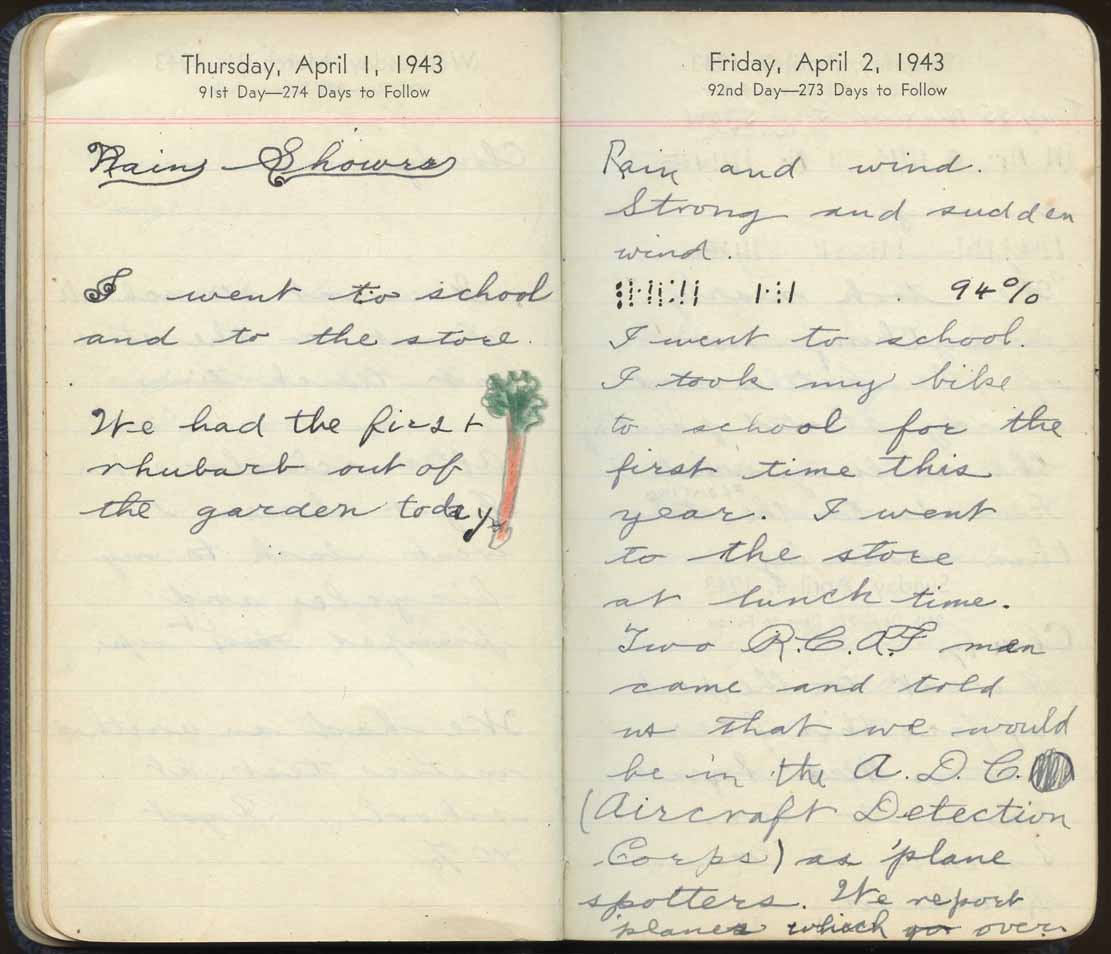 Thursday, April 1, 1943
91st Day—274 Days to Follow
Rain Showers
I went to school
and to the store.
We had the first
rhubarb out of
the garden today.
Friday, April 2, 1943
92nd Day—273 Days to Follow
Rain and wind.
Strong and sudden
wind.
94%
I went to school.
I took my bike
to school for the
first time this
year. I went
to the store
at lunch time.
Two R.C.A.F men
came and told
us that we would
be in the A. D. C.
(Aircraft Detection
Corps) as 'plane
spotters. We report
'planes which go over.